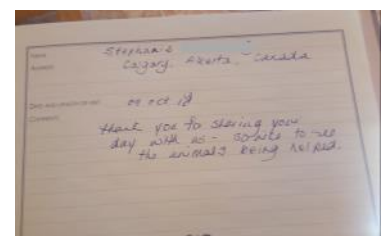 Name Stephanie
Address Calgary, Alberta, Canada
09 Oct 18
Comments
thank you for sharing your
day with us - so nice to see
the animals being helped.